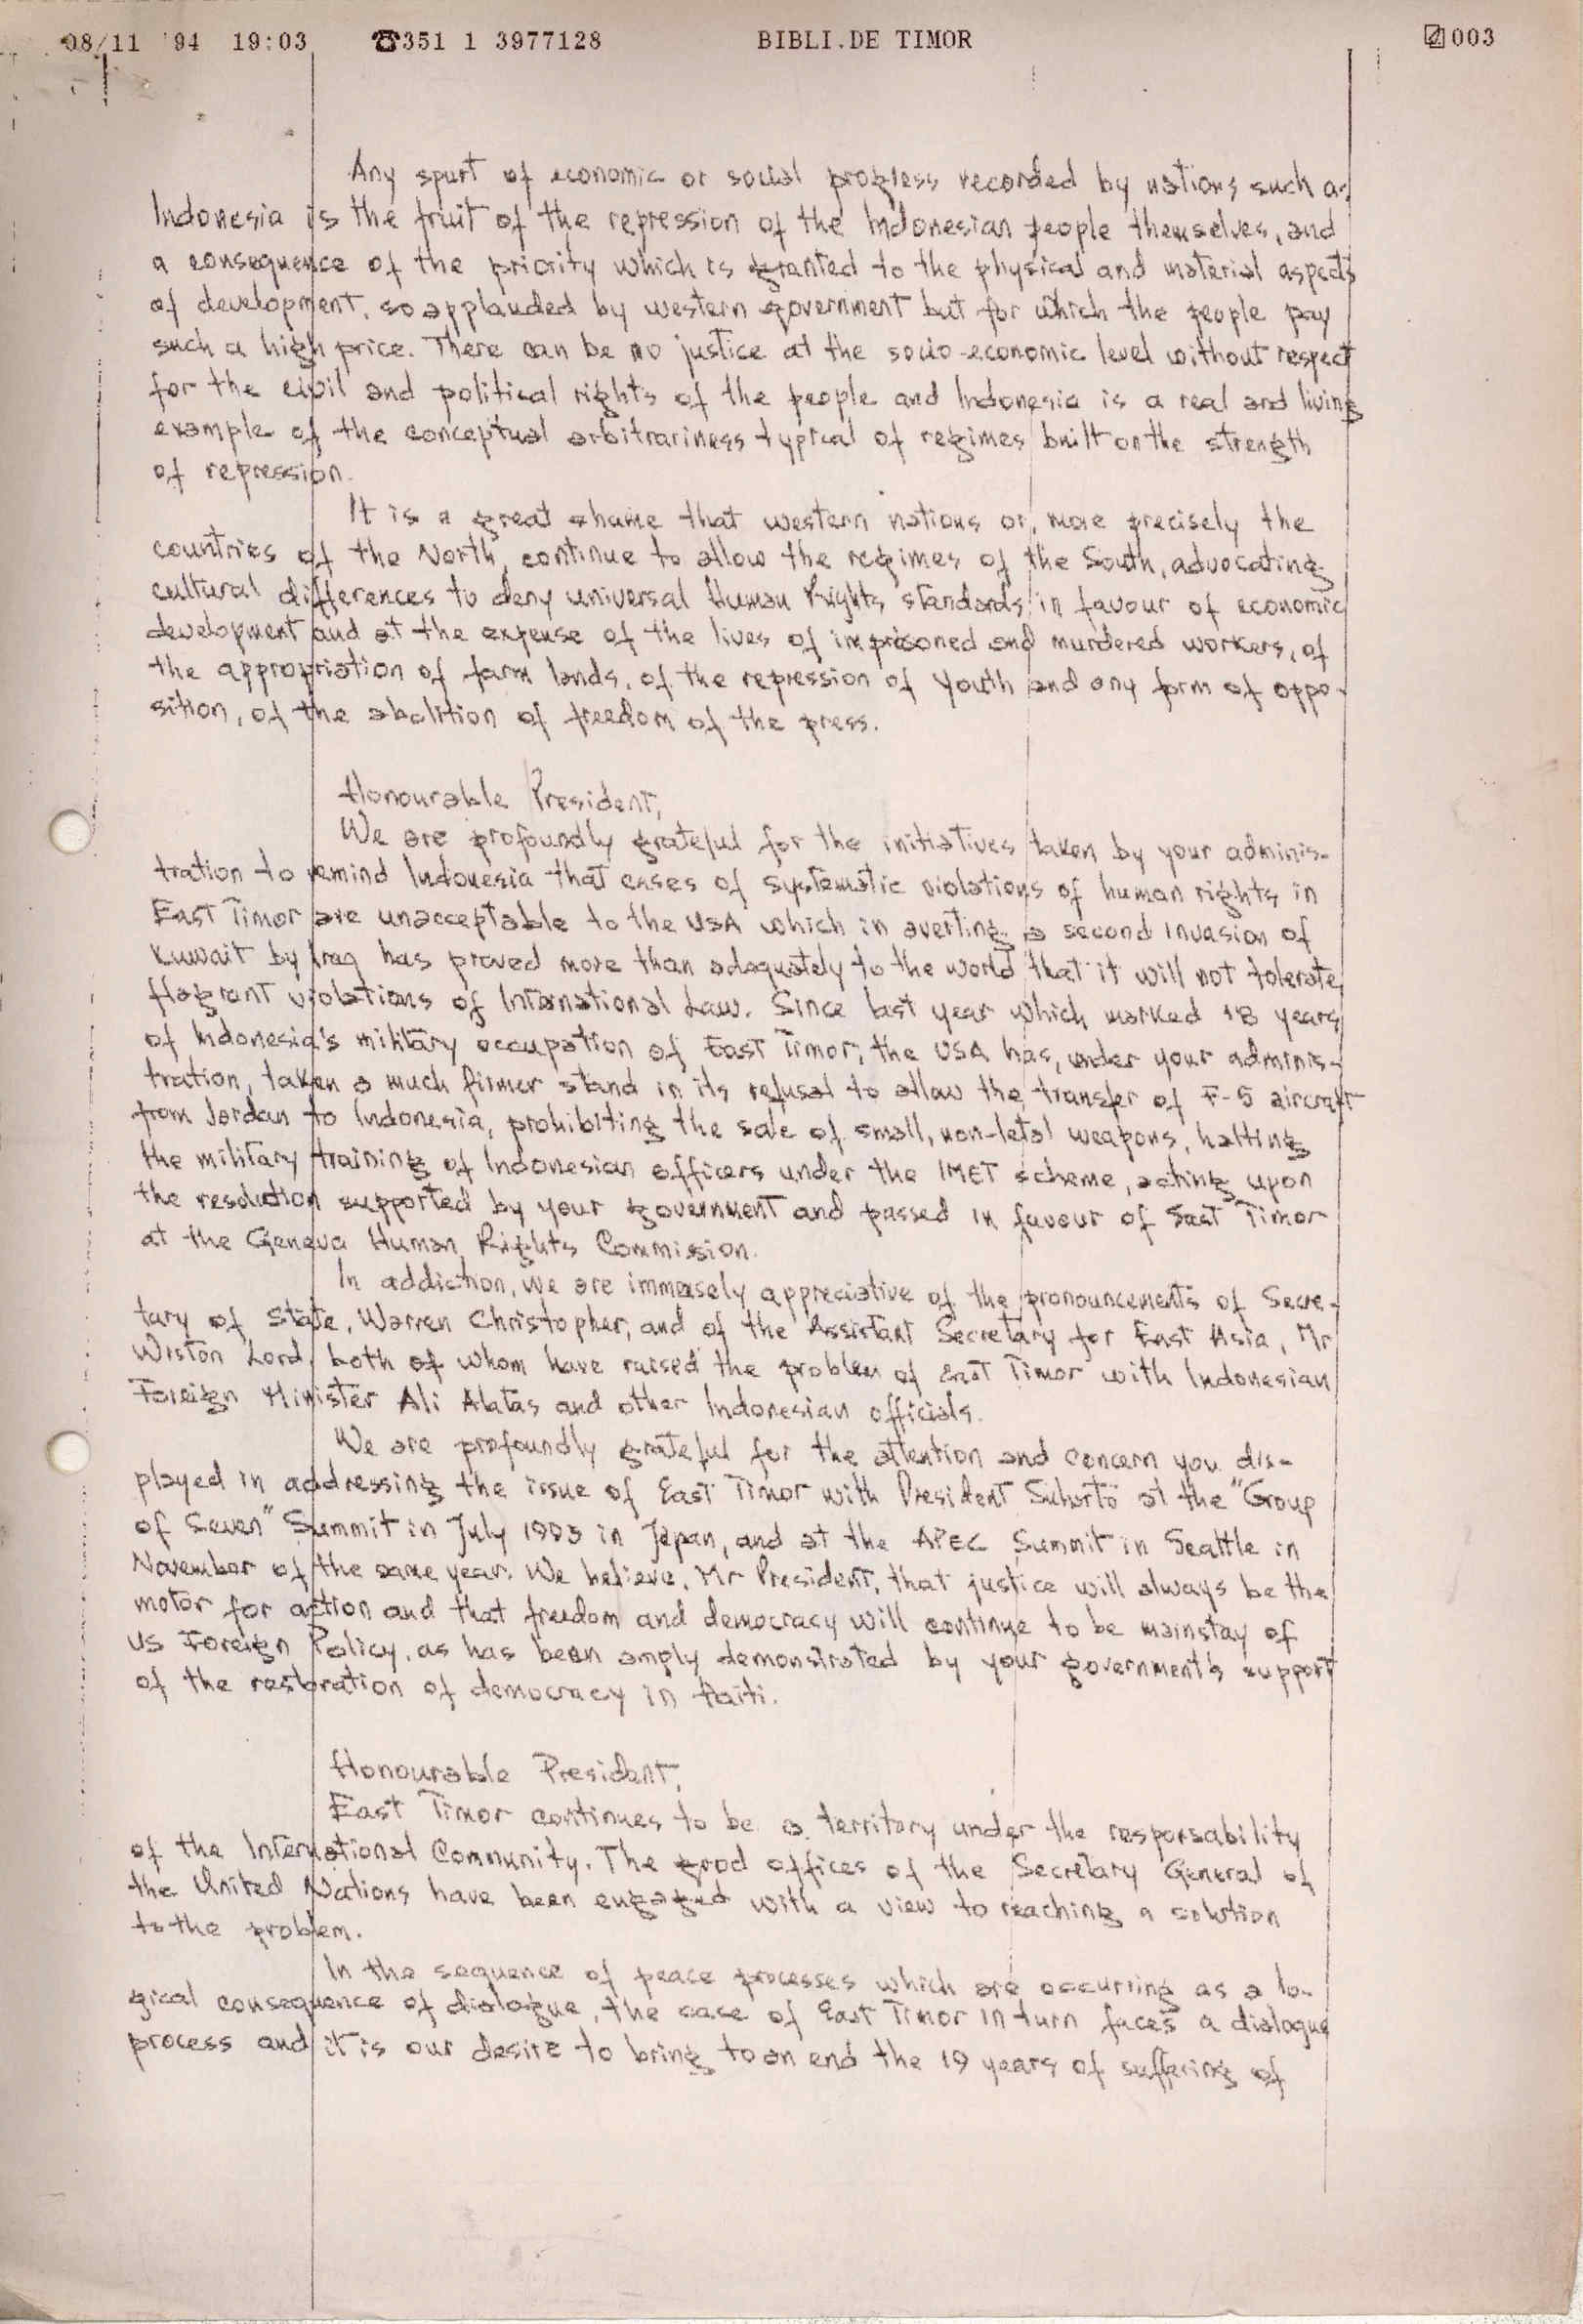 08/11 '94 19:03 ☎351 1 3977128 BIBLI.DE TIMOR 003
Any spurt of economic or social progress recorded by nations such as
Indonesia is the fruit of the repression of the Indonesian people themselves, and
a consequence of the priority which is granted to the physical and material aspects
of development, so applauded by western government but for which the people pay
such a high price. There can be no justice at the socio-economic level without respect
for the civil and political rights of the people and Indonesia is a real and living
example of the conceptual arbitrariness typical of regimes built on the strength
of repression.
It is a great shame that western nations or, more precisely the
countries of the North, continue to allow the regimes of the South, advocating
cultural differences to deny universal Human Rights standards in favour of economic
development and at the expense of the lives of imprisoned and murdered workers, of
the appropriation of farm lands, of the repression of youth and any form of oppo-
sition, of the abolition of freedom of the press.
Honourable President,
We are profoundly grateful for the initiatives taken by your adminis-
tration to remind Indonesia that cases of systematic violations of human rights in
East Timor are unacceptable to the USA which in averting a second invasion of
Kuwait by Iraq has proved more than adequately to the world that it will not tolerate
flagrant violations of International Law. Since last year which marked 18 years
of Indonesia's military occupation of East Timor, the USA has, under your adminis-
tration, taken a much firmer stand in its refusal to allow the transfer of F-5 aircraft
from Jordan to Indonesia, prohibiting the sale of small, non-letal weapons, halting
the military training of Indonesian officers under the IMET scheme, acting upon
the resolution supported by your government and passed in favour of East Timor
at the Geneva Human Rights Commission.
In addiction, we are immesely appreciative of the pronouncements of Secre-
tary of State, Warren Christopher, and of the Assistant Secretary for East Asia, Mr
Wiston Lord, both of whom have raised the problem of East Timor with Indonesian
Foreign Minister Ali Alatas and other Indonesian officials.
We are profoundly grateful for the attention and concern you dis-
played in addressing the issue of East Timor with President Suharto at the "Group
of Seven" Summit in July 1993 in Japan, and at the APEC Summit in Seattle in
November of the same year. We believe, Mr President, that justice will always be the
motor for action and that freedom and democracy will continue to be mainstay of
US Foreign Policy, as has been amply demonstrated by your government's support
of the restoration of democracy in Haiti.
Honourable President,
East Timor continues to be a territory under the responsability
of the International Community. The good offices of the Secretary General of
the United Nations have been engaged with a view to reaching a solution
to the problem.
In the sequence of peace processes which are occurring as a lo-
gical consequence of dialogue, the case of East Timor in turn faces a dialogue
process and it is our desire to bring to an end the 19 years of suffering of